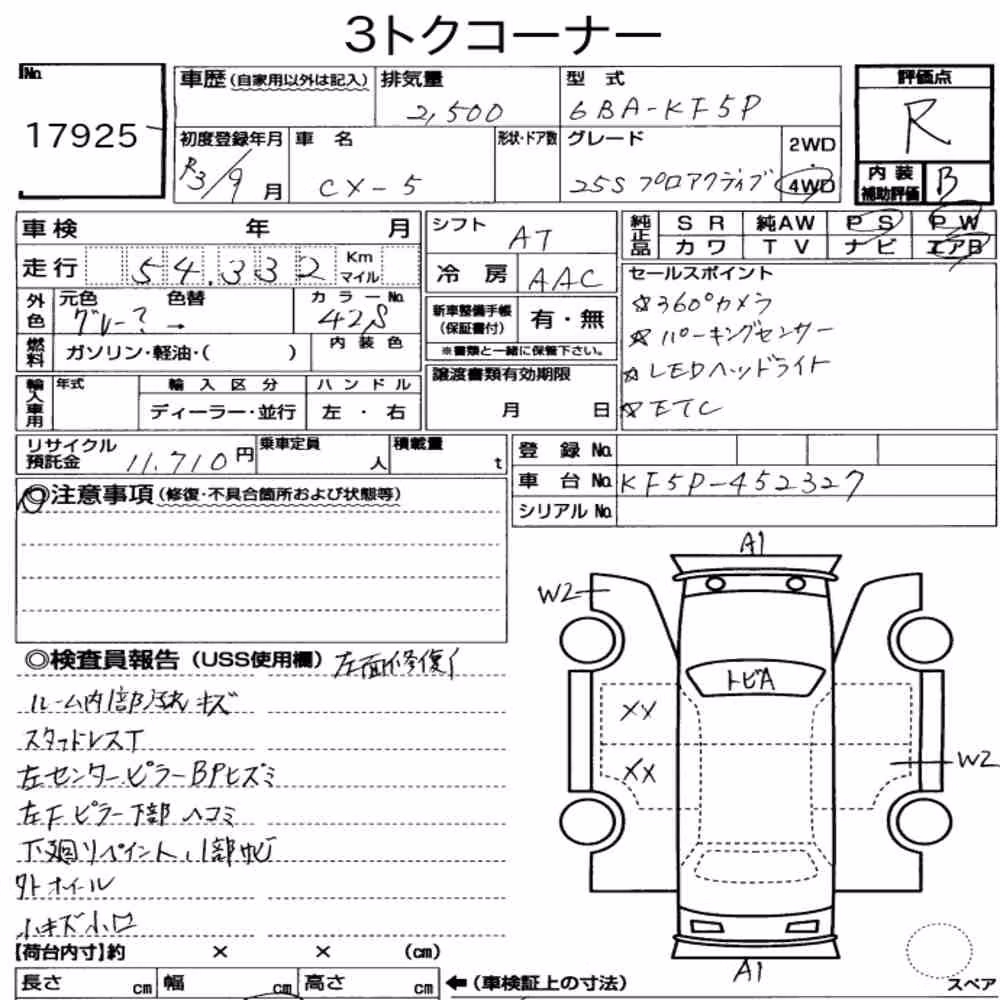 3トクコーナー
No.
17925
車歴(自家用以外は記入) 排気量 型 式 評価点
2,500 6BA-KF5P R
初度登録年月 車 名 形状・ドア数 グレード 2WD
R3/9 月 CX-5 25S プロアクティブ 4WD
内 装 補助評価 B
車検 年 月
シフト AT
純正品 SR 純AW PS PW
カワ TV ナビ エアB
走行 54,332 Km マイル
冷 房 AAC
セールスポイント
☆360°カメラ
☆パーキングセンサー
☆LEDヘッドライト
☆ETC
外色 元色 色替 カラーNo.
グレー? → 42S
新車整備手帳 (保証書付) 有・無
※書類と一緒に保管下さい。
燃料 ガソリン・軽油・( ) 内装色
譲渡書類有効期限
月 日
輸入車用 年式 輸入区分 ハンドル
ディーラー・並行 左・右
リサイクル預託金 11,710円 乗車定員 人 積載量 t
登 録 No.
車 台 No. KF5P-452327
シリアル No.
◎注意事項(修復・不具合箇所および状態等)
◎検査員報告(USS使用欄) 左面修復イ
ルーム内1部汚れ キズ
スタッドレスT
左センターピラーBPヒズミ
左F ピラー下部 ヘコミ
下廻リペイント、1部サビ
外ホイール
小キズ小凹
A1
W2
トビA
XX
XX
W2
A1
スペア
【荷台内寸】約 × × (cm)
長さ cm 幅 cm 高さ cm ←(車検証上の寸法)